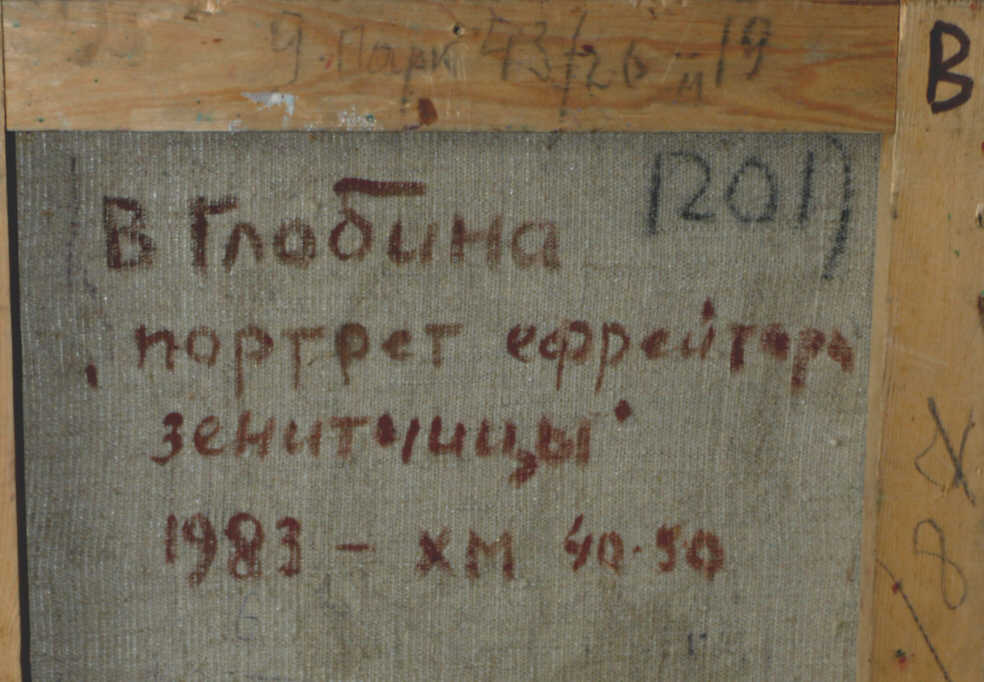 9. Парк 43/26 - 19
В
1201
В Глобина
"портрет ефрейтора
зенитчицы"
1983 - хм 40.50